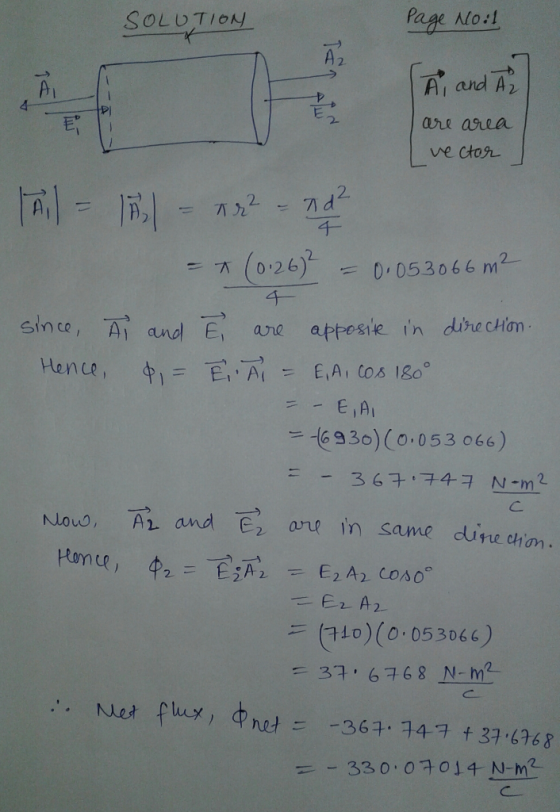 SOLUTION
Page No:1
A⃗1
E⃗1
A⃗2
E⃗2
[A⃗1 and A⃗2
are area
vector]
|A⃗1| = |A⃗2| = πr² = πd²/4
= π(0.26)²/4 = 0.053066 m²
since, A⃗1 and E⃗1 are apposite in direction.
Hence, ϕ1 = E⃗1·A⃗1 = E1A1 cos 180°
= - E1A1
= -(6930)(0.053066)
= - 367.747 N-m²/C
Now, A⃗2 and E⃗2 are in same direction.
Hence, ϕ2 = E⃗2·A⃗2 = E2A2 cos0°
= E2A2
= (710)(0.053066)
= 37.6768 N-m²/C
∴ Net flux, ϕnet = -367.747 + 37.6768
= -330.07014 N-m²/C